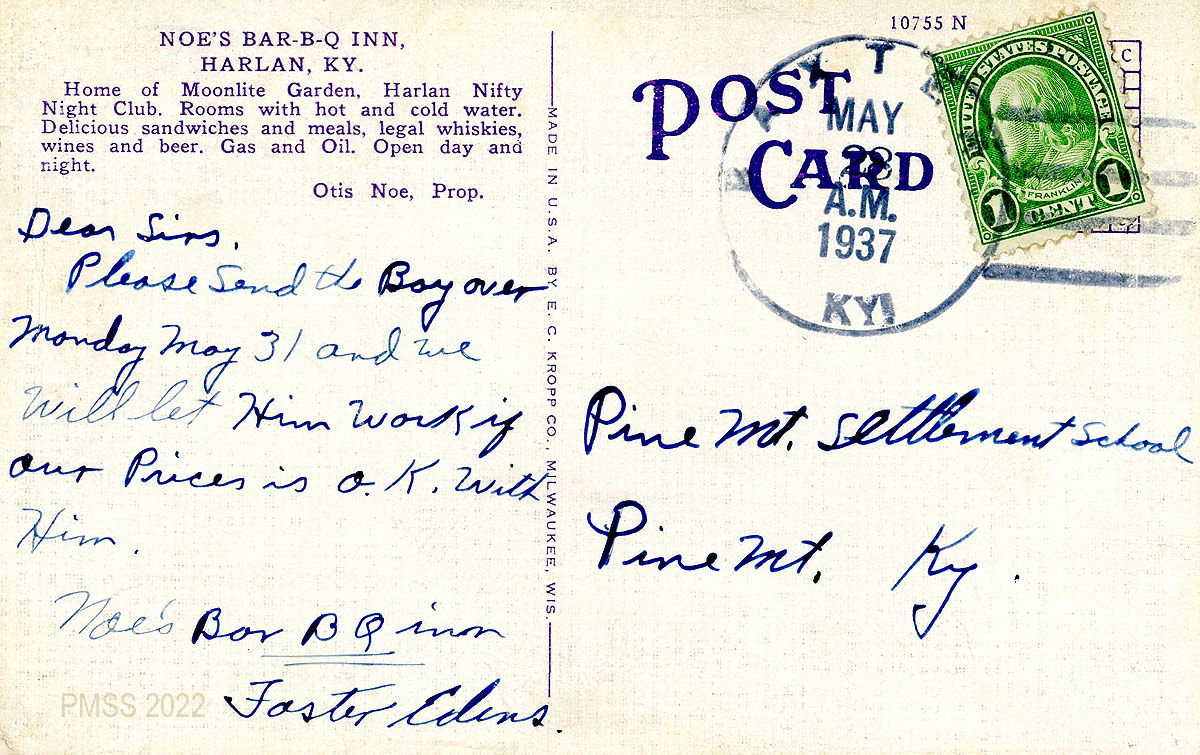 NOE'S BAR-B-Q INN,
HARLAN, KY.
Home of Moonlite Garden, Harlan Nifty
Night Club. Rooms with hot and cold water.
Delicious sandwiches and meals, legal whiskies,
wines and beer. Gas and Oil. Open day and
night.
Otis Noe, Prop.
Dear Sirs,
Please Send the Boy over
Monday May 31 and we
will let Him work if
our Prices is O.K. with
Him.
Noe's Bar B Q inn
Foster Edens.
PMSS 2022
MADE IN U.S.A. BY E. C. KROPP CO., MILWAUKEE, WIS.
10755 N
POST
CARD
MAY
28
A.M.
1937
KY
UNITED STATES POSTAGE
FRANKLIN
1 CENT 1
C
Pine Mt. Settlement School
Pine Mt. Ky.